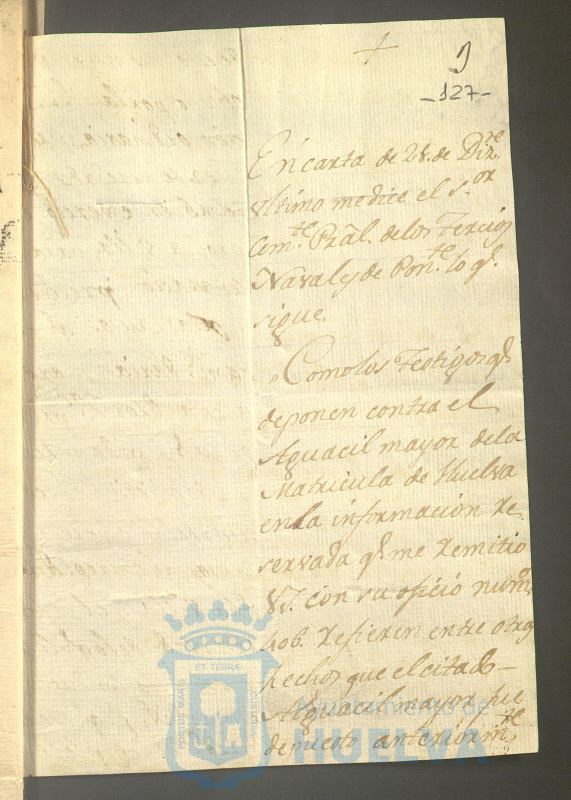 +
9
-127-
En carta de 28. de Diz.re
ultimo me dice el S.or
Com.te Pral. delos Tercios
Navales de Pon.te lo q.e
sigue.
"Como los Testigos q.e
deponen contra el
Aguacil mayor dela
Matricula de Huelva
enla informacion re
servada q.e me remitio
VS. con su oficio num.o
refieren entre otros
hechos que el citado
Alguacil mayor fue
depuesto anteriorm.te
PORTUS MARIS
ET TERRÆ
CUSTODIA
Ayuntamiento de
HUELVA